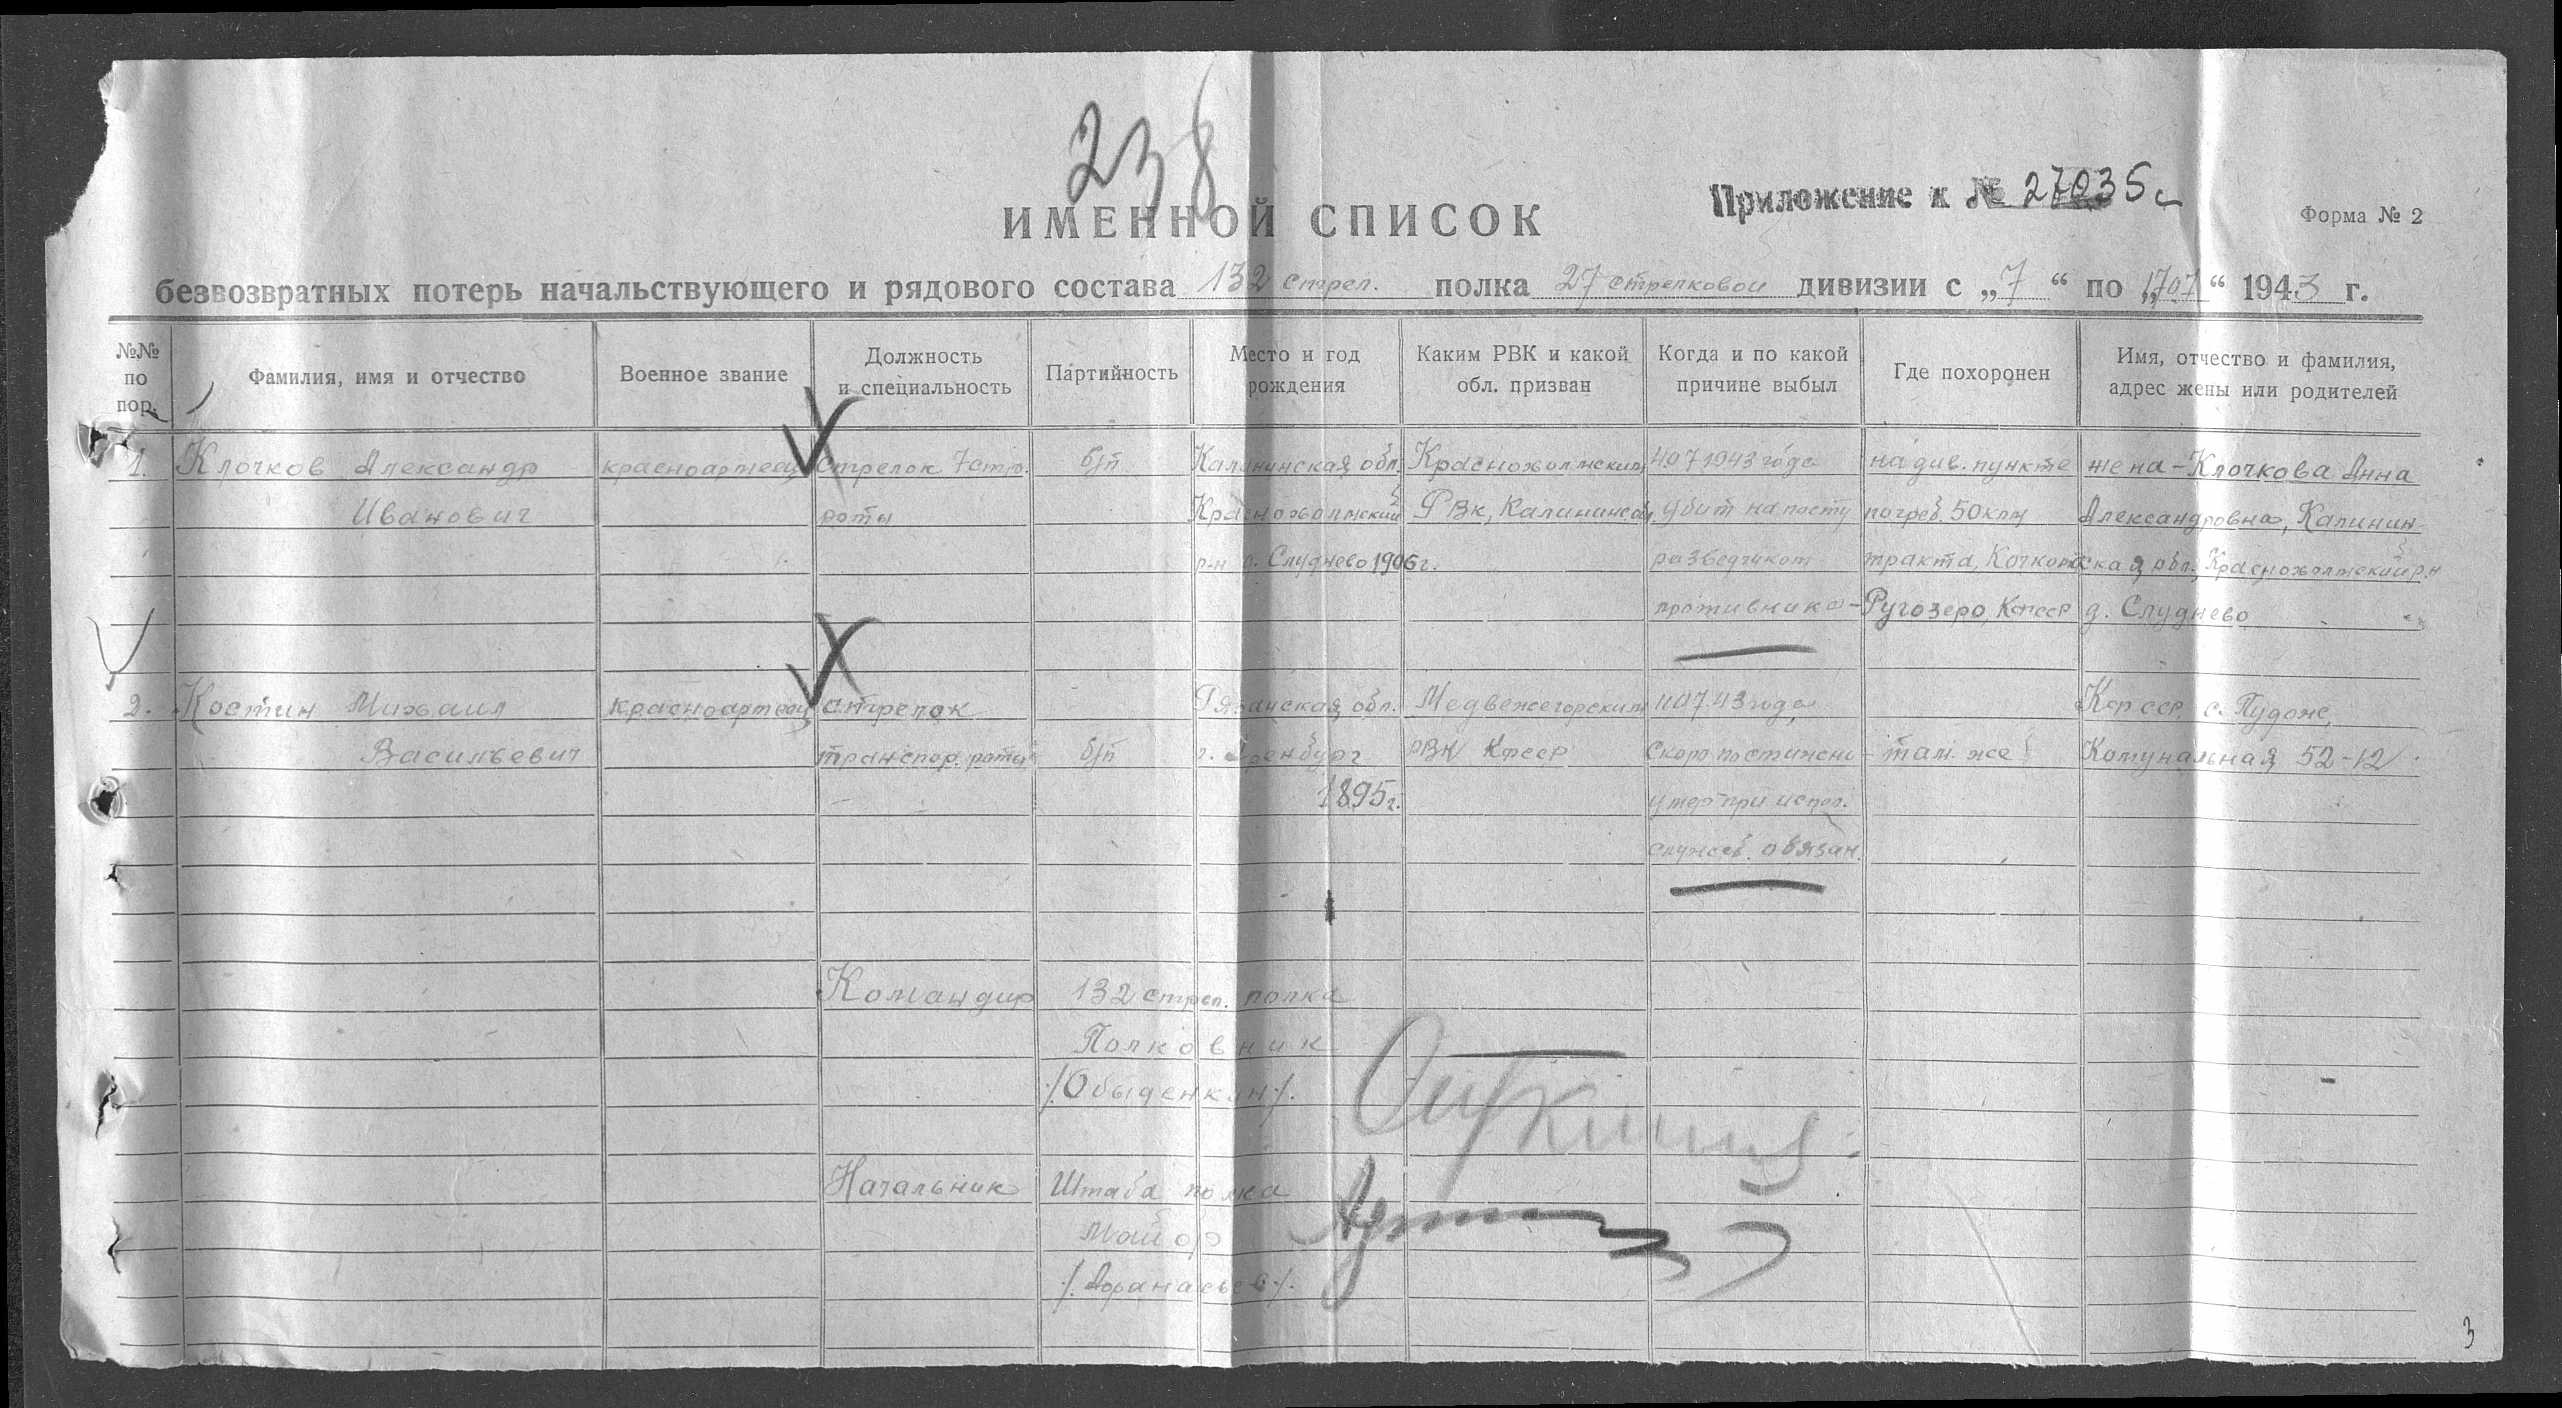 238
ИМЕННОЙ СПИСОК
Приложение к № 27035с
Форма № 2
безвозвратных потерь начальствующего и рядового состава 132 стрел. полка 27 стрелковой дивизии с „7“ по „17.07“ 1943 г.
№№ по пор.
Фамилия, имя и отчество
Военное звание
Должность и специальность
Партийность
Место и год рождения
Каким РВК и какой обл. призван
Когда и по какой причине выбыл
Где похоронен
Имя, отчество и фамилия, адрес жены или родителей
1. Клочков Александр красноармеец стрелок 7 стр. б/п Калининская обл. Краснохолмским 1943 года на див. пункте жена - Клочкова Анна
Иванович роты Краснохолмский РВк, Калининской убит на посту погреб. 50 клм Александровна, Калинин
р-н д. Слуднево 1906 г. разведчиком тракта, Кочкома ская обл., Краснохолмский р-н
противника - Ругозеро, Кфсср д. Слуднево
2. Костин Михаил красноармеец стрелок Рязанская обл. Медвежегорским 1107.43 года Кфсср, с. Пудож,
Васильевич транспор. роты б/п г. РВК Кфсср скоропостижно - там же Комунальная 52-12
1895 г. умер при испол.
служеб. обязан.
Командир 132 стрел. полка
Полковник
/Обыденкин/.
Начальник Штаба полка
Майор
/.Афанасьев/.
3